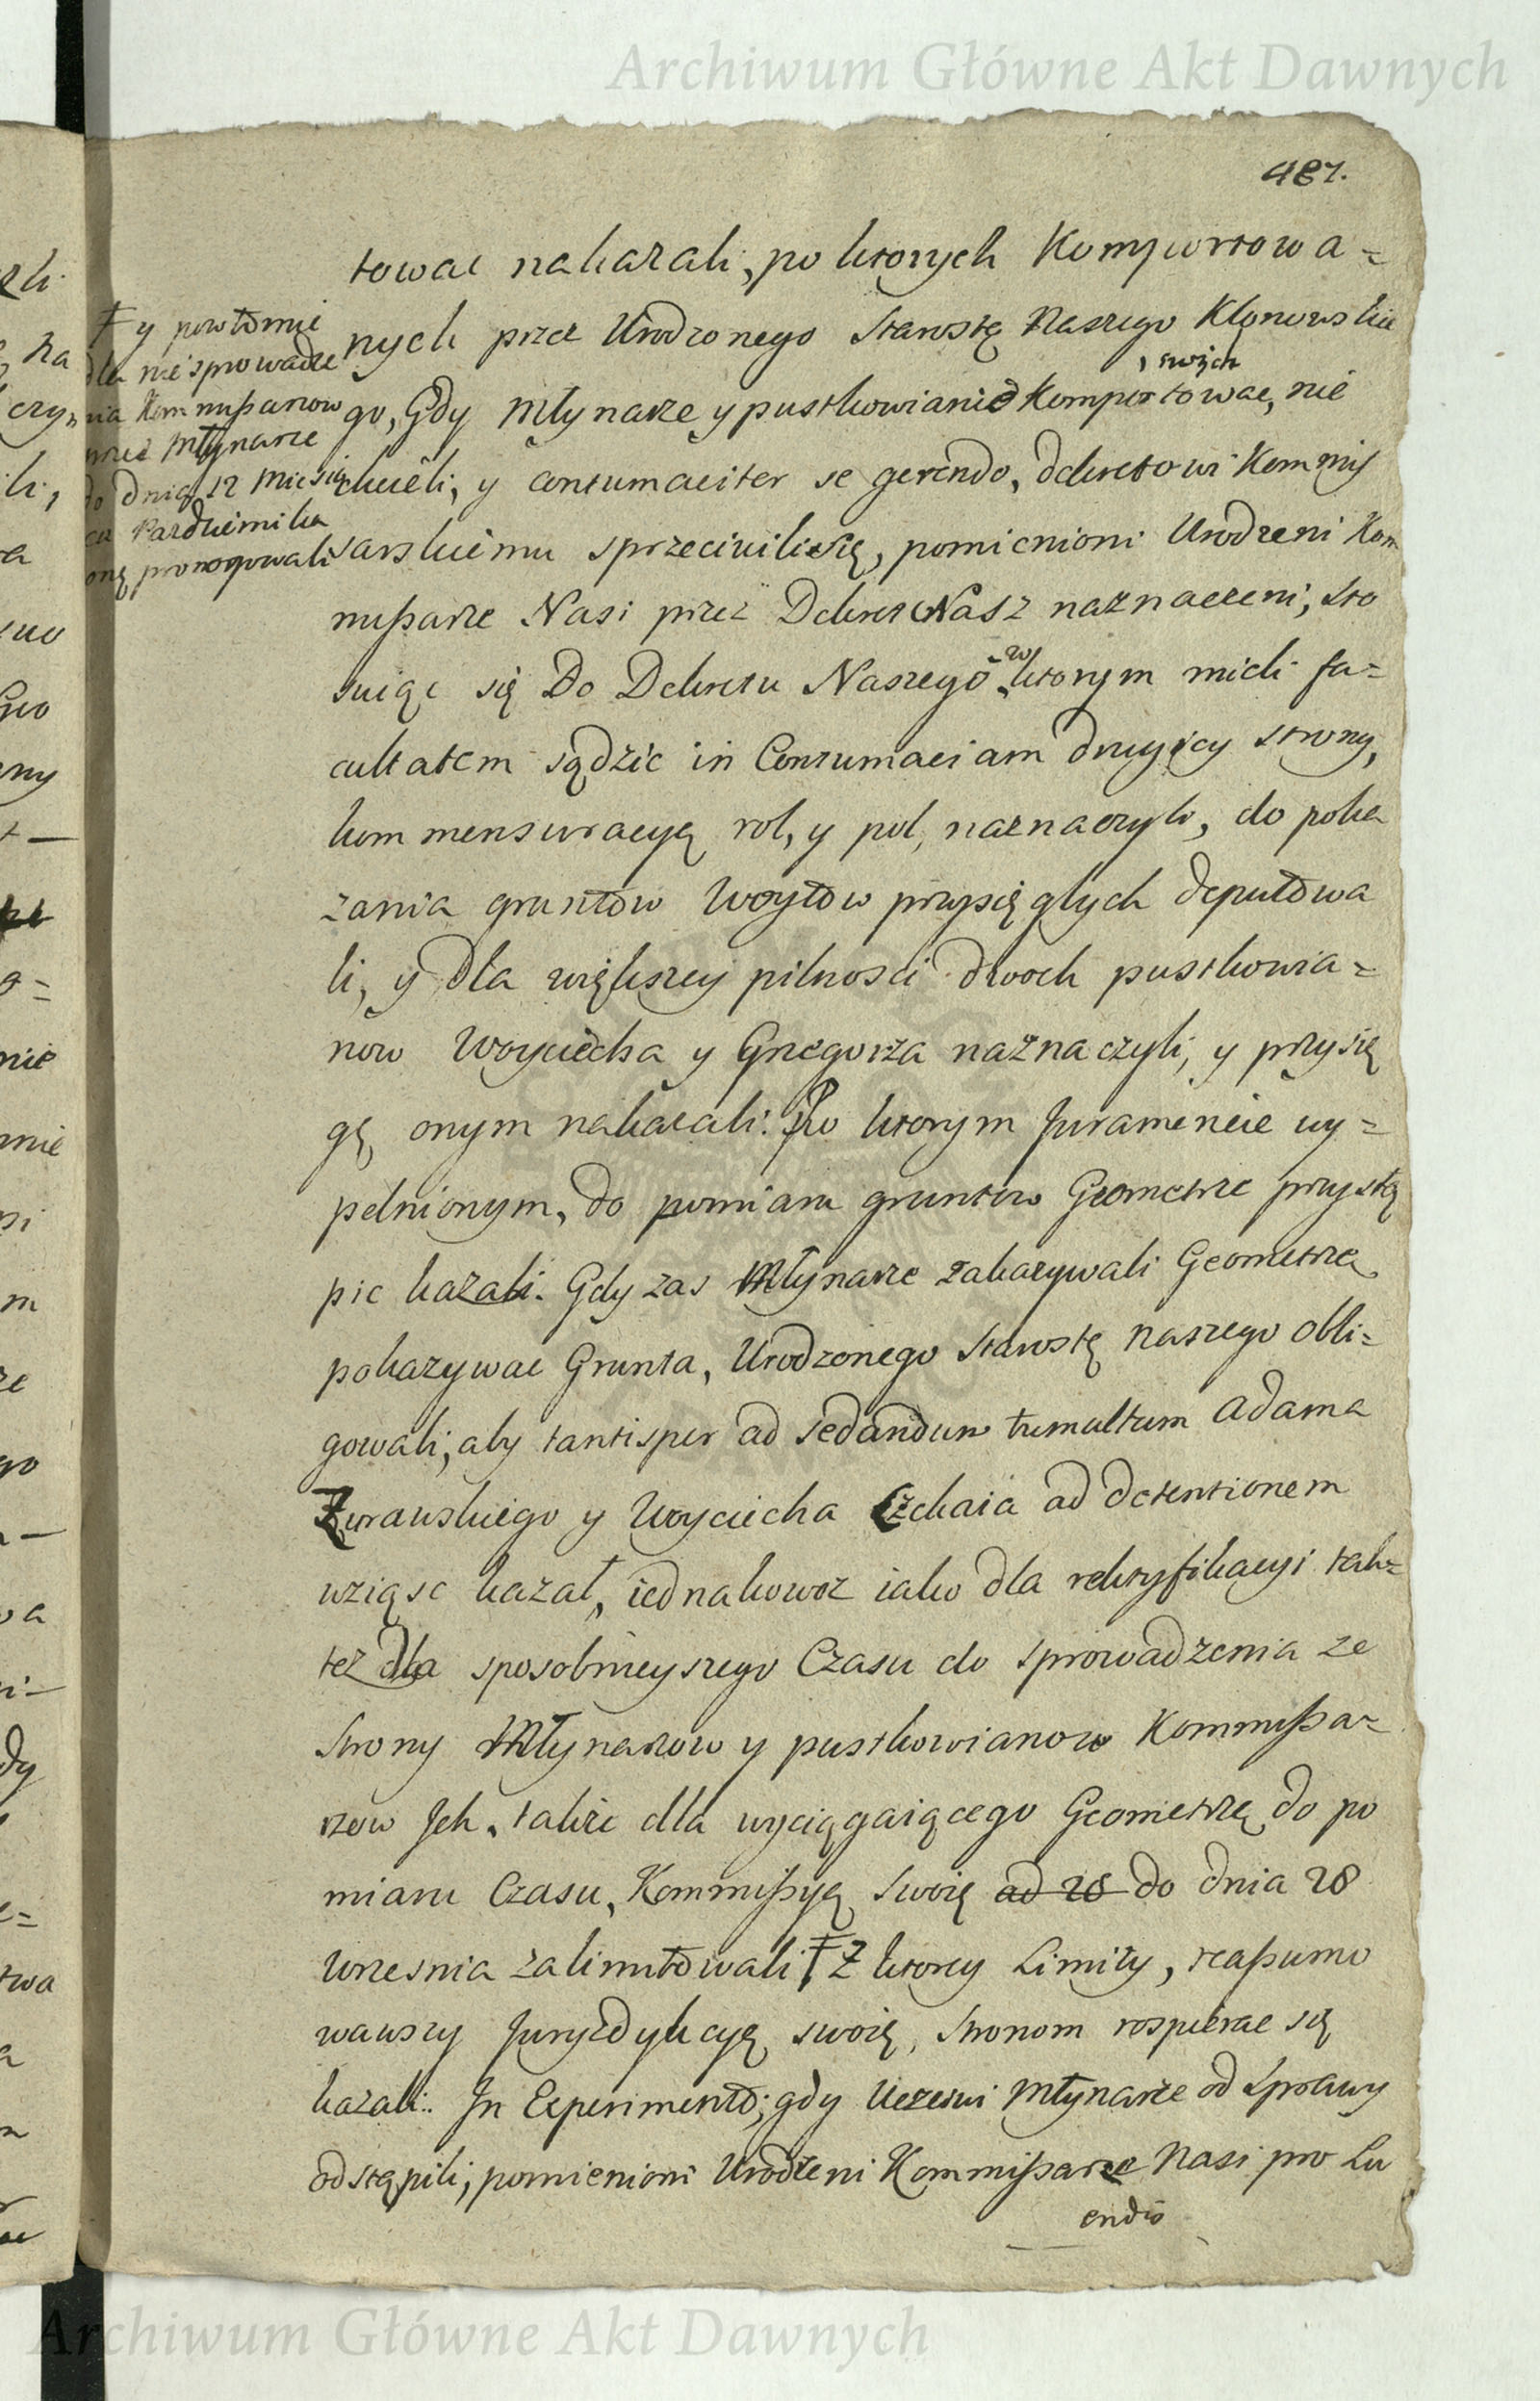 Archiwum Główne Akt Dawnych
487.
towac nakazali, po ktorych Komportowa=
nych przez Urodzonego Starostę Naszego Klonowskie
, swych
go, Gdy Młynarze y pustkowianie Komportowac, nie
chcieli, y contumaciter se gerendo, dekretowi Kommis
sarskiemu sprzeciwili się, pomienioni Urodzeni Kom
mißarze Nasi przez Dekret Nasz naznaczeni, sto
suiąc się Do Dekretu Naszego w ktorym mieli fa=
cultatem sądzic in Contumaciam drugiey strony,
kommensuracyą rol, y pol, naznaczyli, do poka
zania gruntow Woytow przysięglych deputowa
li, y dla większey pilnosci dwoch pustkowia=
now Woyciecha y Grzegorza naznaczyli, y przysię
gę onym nakazali: Po ktorym Juramencie wy=
pelnionym, do pomiaru gruntow Geometrze przystą
pic kazali. Gdy zas Młynarze zakazywali Geometrze
pokazywac Grunta, Urodzonego Starostę naszego obli=
gowali, aby tantisper ad sedandum tumultum Adama
Zurawskiego y Woyciecha Czekaia ad detentionem
wziąsc kazał, iednakowoz iako dla rektyfikacyi tak=
tez dla sposobnieyszego Czasu do sprowadzenia ze
Strony Młynarzow y pustkowianow Kommißa=
rzow Jch, także dla wyciągaiącego Geometrę do po
miaru Czasu, Kommißyą swoię ad 28 do dnia 28
Wrzesnia zalimitowali, Ŧ Z ktorey Limity, reaßumo
wawszy Juryzdykcyą swoię, Stronom rospierac się
kazali. Jn Experimento; gdy Uczciwi Młynarze od Sprawy
odstąpili, pomienioni Urodzeni Kommißarze Nasi pro Lu
endis
Ŧ y powtornie
dla nie sprowadze
nia Kommißarzow
przez Młynarze
do dnia 12 miesią
ca Pazdziernika
onę prorogowali
Archiwum Główne Akt Dawnych